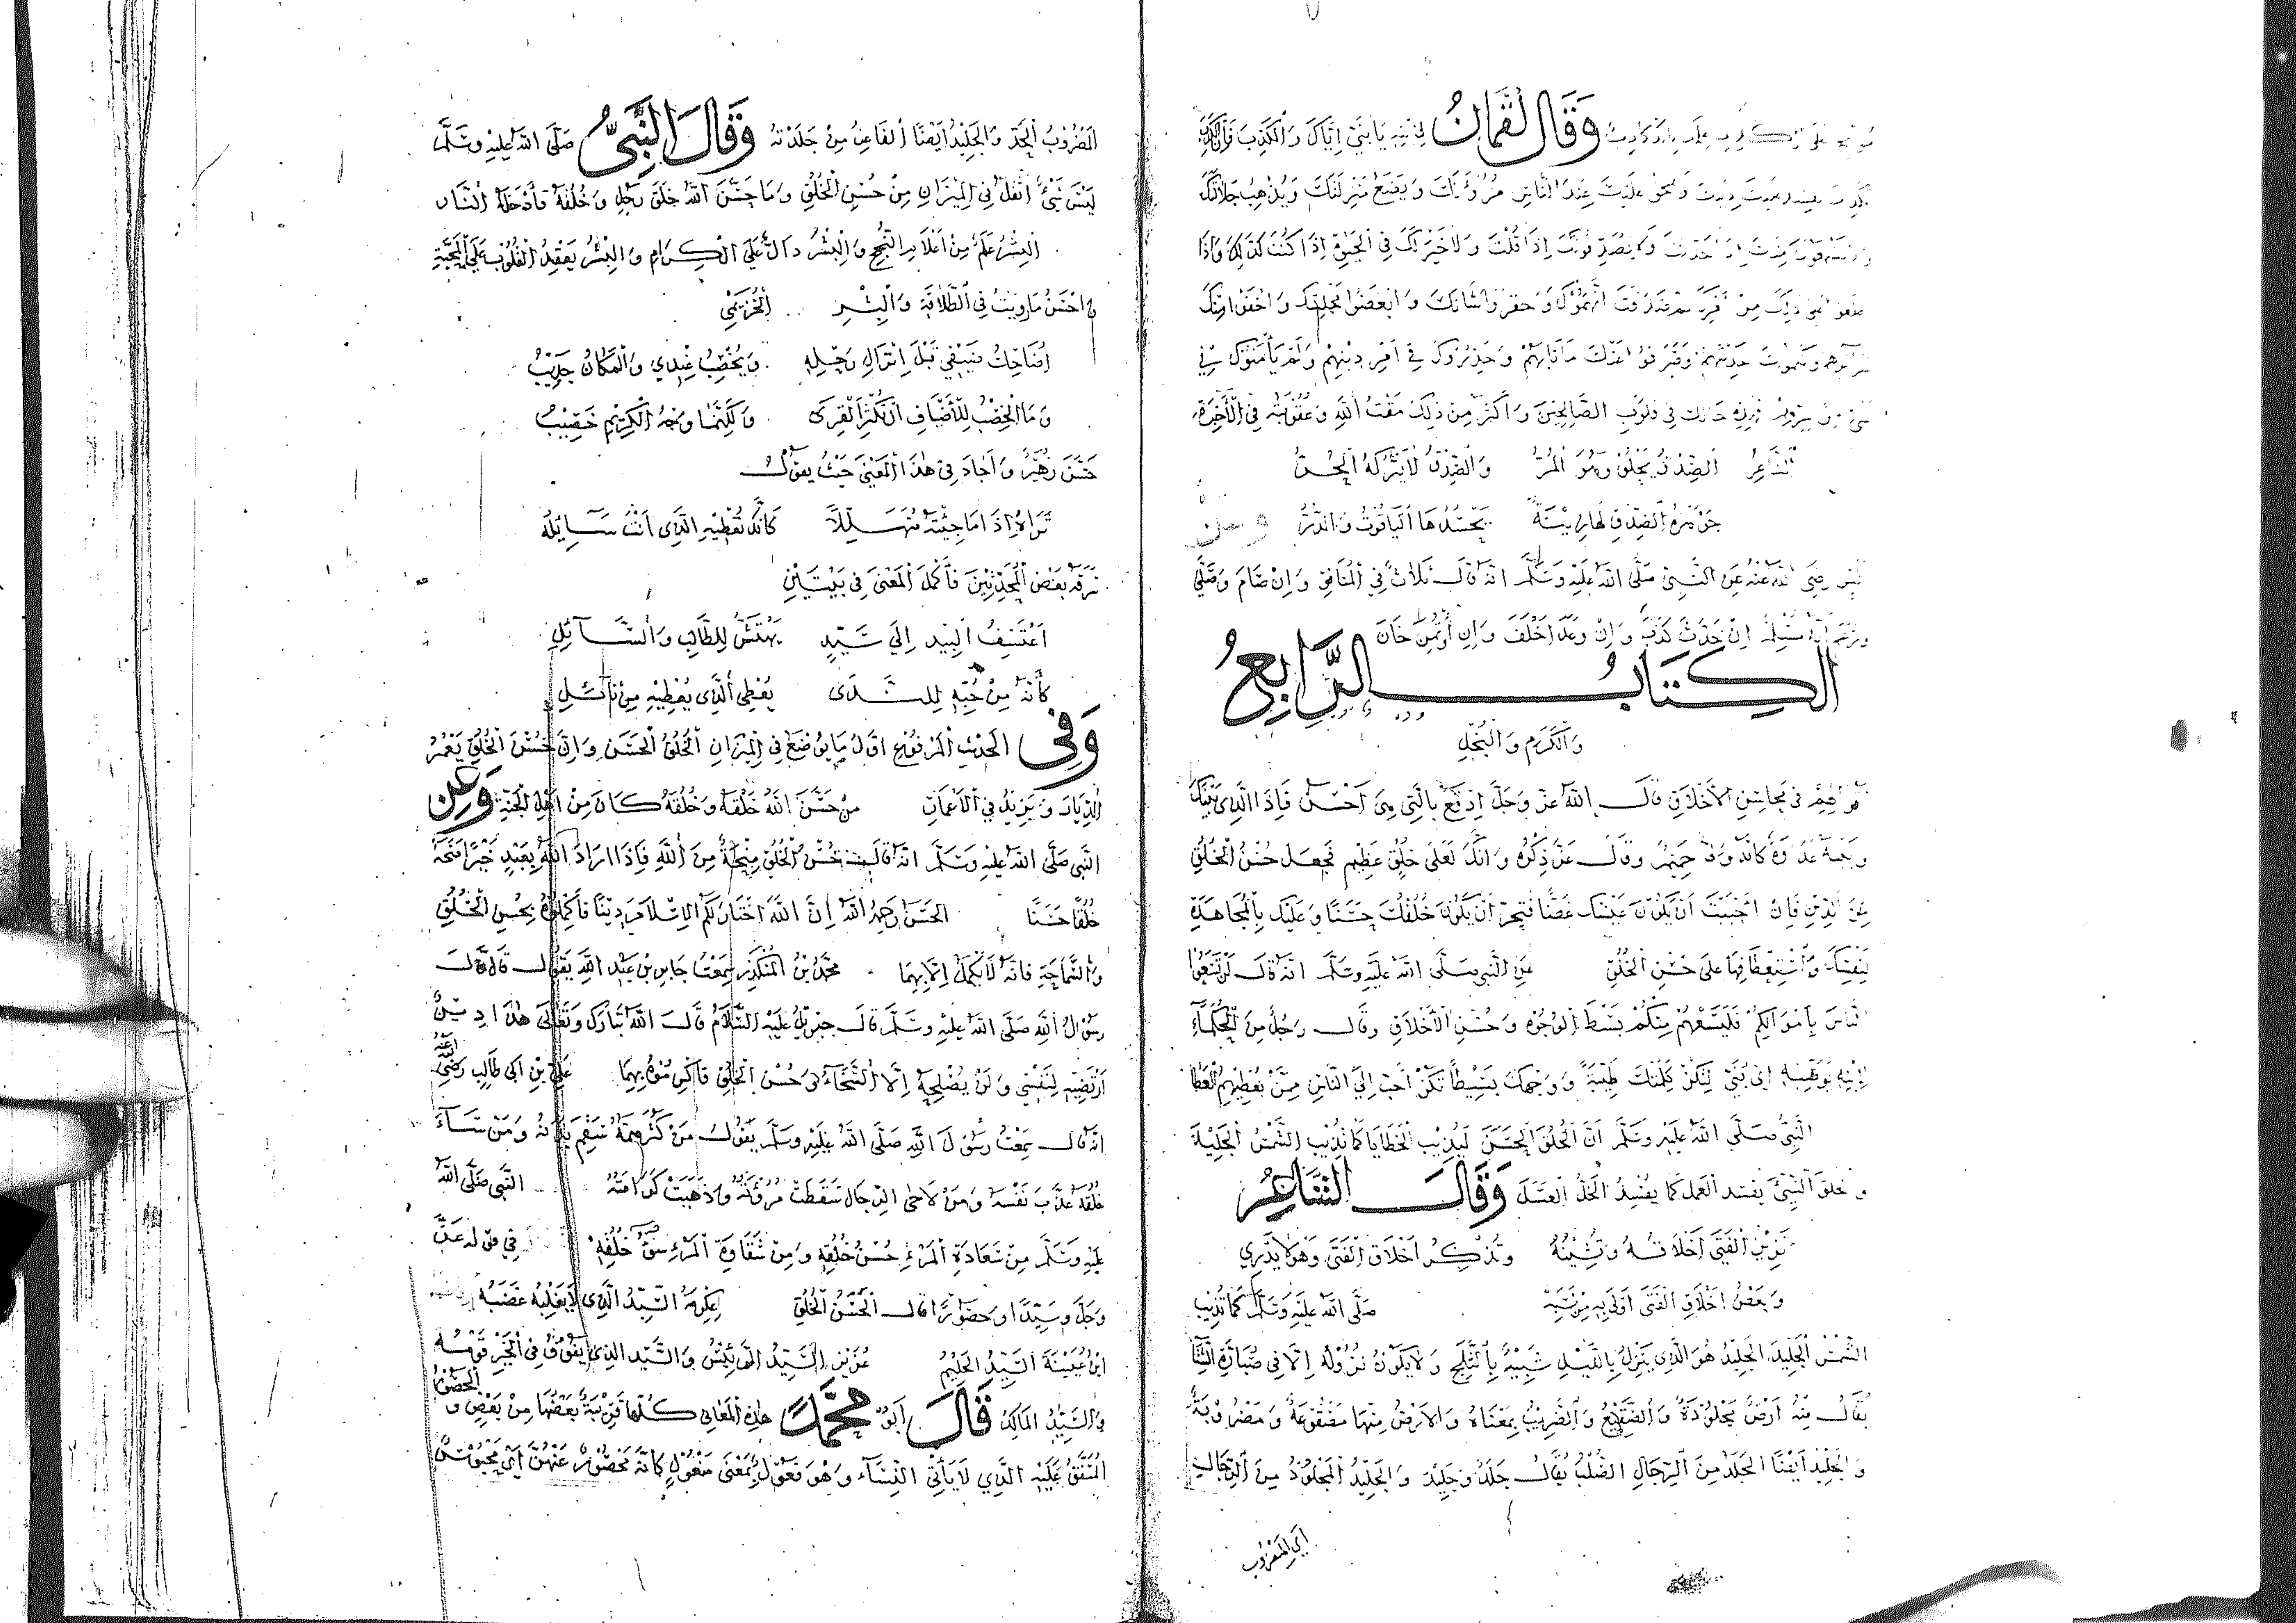 وَقَالَ لُقْمَانُ لِابْنِهِ يَا بُنَيَّ اِيَّاكَ وَالْكَذِبَ فَاِنَّ الْكَذِبَ
عِنْدَ النَّاسِ مُرُوَّتَكَ وَيَضَعُ مَنْزِلَتَكَ وَيُذْهِبُ جَلَالَتَكَ
اِذَا قُلْتَ وَلَا خَيْرَ لَكَ فِي الْحَيٰوةِ اِذَا كُنْتَ كَذٰلِكَ وَاِذَا
وَحَقَّرُوا شَانَكَ وَاَبْغَضُوا مَجْلِسَكَ وَاَخْفَوْا مِنْكَ
وَحَذِرُوكَ فِي اَمْرِ دِيْنِهِمْ وَلَمْ يَاْمَنُوكَ
فِي قُلُوبِ الصَّالِحِيْنَ وَاَكْبَرُ مِنْ ذٰلِكَ مَقْتُ اللّٰهِ وَعُقُوبَتُهُ فِي الْاٰخِرَةِ
الشَّاعِرُ اَلصِّدْقُ يَحْلُوْ وَهُوَ الْمُرُّ وَالصِّدْقُ لَا يَتْرُكُهُ الْحُرُّ
جَوْهَرَةُ الصِّدْقِ لَهَا زِيْنَةٌ يَحْسُدُهَا الْيَاقُوتُ وَالدُّرُّ
رَضِيَ اللّٰهُ عَنْهُ عَنِ النَّبِيِّ صَلَّى اللّٰهُ عَلَيْهِ وَسَلَّمَ اَنَّهُ قَالَ ثَلَاثٌ فِي الْمُنَافِقِ وَاِنْ صَامَ وَصَلَّى
وَزَعَمَ اَنَّهُ مُسْلِمٌ اِنْ حَدَّثَ كَذَبَ وَاِنْ وَعَدَ اَخْلَفَ وَاِنِ اؤْتُمِنَ خَانَ
الكِتَابُ الرَّابِعُ
وَالْكَرَمِ وَالْبُخْلِ
فِي مَحَاسِنِ الْاَخْلَاقِ قَالَ اللّٰهُ عَزَّ وَجَلَّ اِدْفَعْ بِالَّتِي هِيَ اَحْسَنُ فَاِذَا الَّذِي بَيْنَكَ
وَبَيْنَهُ عَدَاوَةٌ كَاَنَّهُ وَلِيٌّ حَمِيْمٌ وَقَالَ عَزَّ ذِكْرُهُ وَاِنَّكَ لَعَلٰى خُلُقٍ عَظِيْمٍ فَجَعَلَ حُسْنَ الْخُلُقِ
مِنَ الدِّيْنِ فَاِنْ اَحْبَبْتَ اَنْ يَكُوْنَ عَيْشُكَ غَضًّا فَتَحَرَّ اَنْ يَكُوْنَ خُلُقُكَ حَسَنًا وَعَلَيْكَ بِالْمُجَاهَدَةِ
لِنَفْسِكَ وَاسْتِعْطَافِهَا عَلٰى حُسْنِ الْخُلُقِ عَنِ النَّبِيِّ صَلَّى اللّٰهُ عَلَيْهِ وَسَلَّمَ اَنَّهُ قَالَ لَنْ تَسَعُوا
النَّاسَ بِاَمْوَالِكُمْ فَلْيَسَعْهُمْ مِنْكُمْ بَسْطُ الْوُجُوْهِ وَحُسْنُ الْاَخْلَاقِ وَقَالَ رَجُلٌ مِنَ الْحُكَمَاءِ
لِابْنِهِ يُوصِيْهِ اَيْ بُنَيَّ لِتَكُنْ كَلِمَتُكَ طَيِّبَةً وَوَجْهُكَ بَسِيْطًا تَكُنْ اَحَبَّ اِلَى النَّاسِ مِمَّنْ يُعْطِيْهِمُ الْعَطَا
النَّبِيُّ صَلَّى اللّٰهُ عَلَيْهِ وَسَلَّمَ اَنَّ الْخُلُقَ الْحَسَنَ لَيُذِيْبُ الْخَطَايَا كَمَا تُذِيْبُ الشَّمْسُ الْجَلِيْدَ
وَخُلُقُ السَّيِّئِ يُفْسِدُ الْعَمَلَ كَمَا يُفْسِدُ الْخَلُّ الْعَسَلَ وَقَالَ الشَّاعِرُ
تَزِيْنُ الْفَتٰى اَخْلَاقُهُ وَتُشِيْنُهُ وَتُذْكَرُ اَخْلَاقُ الْفَتٰى وَهُوَ لَا يَدْرِي
وَبَعْضُ اَخْلَاقِ الْفَتٰى اَوْلٰى بِهِ مِنْ نَسَبِهِ صَلَّى اللّٰهُ عَلَيْهِ وَسَلَّمَ كَمَا تُذِيْبُ
الشَّمْسُ الْجَلِيْدَ الْجَلِيْدُ هُوَ الَّذِي يَنْزِلُ بِاللَّيْلِ شَبِيْهٌ بِالثَّلْجِ وَلَا يَكُوْنُ نُزُوْلُهُ اِلَّا فِي صَبَارَّةِ الشِّتَا
يُقَالُ مِنْهُ اَرْضٌ مَجْلُوْدَةٌ وَالصَّقِيْعُ وَالضَّرِيْبُ بِمَعْنَاهُ وَالْاَرْضُ مِنْهَا مَصْقُوْعَةٌ وَمَضْرُوْبَةٌ
وَالْجَلِيْدُ اَيْضًا الْجَلْدُ مِنَ الرِّجَالِ الصُّلْبُ يُقَالُ جَلْدٌ وَجَلِيْدٌ وَالْجَلِيْدُ الْمَجْلُوْدُ مِنَ الرِّجَالِ
اَيِ الْمَضْرُوْب
الْمَضْرُوْبُ الْحَدَّ وَالْجَلِيْدُ اَيْضًا الْفَاعِلُ مِنْ جَلَدْتُهُ وَقَالَ النَّبِيُّ صَلَّى اللّٰهُ عَلَيْهِ وَسَلَّمَ
لَيْسَ شَيْءٌ اَثْقَلَ فِي الْمِيْزَانِ مِنْ حُسْنِ الْخُلُقِ وَمَا حَسَّنَ اللّٰهُ خَلْقَ رَجُلٍ وَخُلُقَهُ فَاَدْخَلَهُ النَّارَ
الْبِشْرُ عَلَمٌ مِنْ اَعْلَامِ النُّجْحِ وَالْبِشْرُ دَالٌّ عَلَى الْكِرَامِ وَالْبِشْرُ يَعْقِدُ الْقُلُوْبَ عَلَى الْمَحَبَّةِ
وَاَحْسَنُ مَا رُوِيَتْ فِي الطَّلَاقَةِ وَالْبِشْرِ الْخُزَيْمِيِّ
اُضَاحِكُ ضَيْفِي قَبْلَ اِنْزَالِ رَحْلِهِ وَيُخْصِبُ عِنْدِي وَالْمَكَانُ جَدِيْبُ
وَمَا الْخِصْبُ لِلْاَضْيَافِ اَنْ تَكْثُرَ الْقِرٰى وَلٰكِنَّمَا وَجْهُ الْكَرِيْمِ خَصِيْبُ
حَسَّنَ زُهَيْرٌ وَاَجَادَ فِي هٰذَا الْمَعْنٰى حَيْثُ يَقُوْلُ
تَرَاهُ اِذَا مَا جِئْتَهُ مُتَهَلِّلًا كَاَنَّكَ تُعْطِيْهِ الَّذِي اَنْتَ سَآئِلُهُ
سَرَقَهُ بَعْضُ الْمُحْدَثِيْنَ فَاَكْمَلَ الْمَعْنٰى فِي بَيْتَيْنِ
اَعْتَسِفُ الْبِيْدَ اِلٰى سَيِّدٍ يَهْتَشُّ لِلطَّالِبِ وَالسَّآئِلِ
كَاَنَّهُ مِنْ حُبِّهِ لِلنَّدٰى يُعْطِى الَّذِي يُعْطِيْهِ مِنْ نَآئِلِ
وَفِي الْحَدِيْثِ الْمَرْفُوْعِ اَوَّلُ مَا يُوْضَعُ فِي الْمِيْزَانِ الْخُلُقُ الْحَسَنُ وَاِنَّ حُسْنَ الْخُلُقِ يَعْمُرُ
الدِّيَارَ وَيَزِيْدُ فِي الْاَعْمَارِ مَنْ حَسَّنَ اللّٰهُ خَلْقَهُ وَخُلُقَهُ كَانَ مِنْ اَهْلِ الْجَنَّةِ وَعَنِ
النَّبِيِّ صَلَّى اللّٰهُ عَلَيْهِ وَسَلَّمَ اَنَّهُ قَالَ حُسْنُ الْخُلُقِ مِنْحَةٌ مِنَ اللّٰهِ فَاِذَا اَرَادَ اللّٰهُ بِعَبْدٍ خَيْرًا مَنَحَهُ
خُلُقًا حَسَنًا الْحَسَنُ رَحِمَهُ اللّٰهُ اِنَّ اللّٰهَ اخْتَارَ لَكُمُ الْاِسْلَامَ دِيْنًا فَاَكْمِلُوْهُ بِحُسْنِ الْخُلُقِ
وَالسَّمَاحَةِ فَاِنَّهُ لَا يَكْمُلُ اِلَّا بِهِمَا مُحَمَّدُ بْنُ الْمُنْكَدِرِ سَمِعْتُ جَابِرَ بْنَ عَبْدِ اللّٰهِ يَقُوْلُ قَالَ
رَسُوْلُ اللّٰهِ صَلَّى اللّٰهُ عَلَيْهِ وَسَلَّمَ قَالَ جِبْرِيْلُ عَلَيْهِ السَّلَامُ قَالَ اللّٰهُ تَبَارَكَ وَتَعَالٰى هٰذَا دِيْنٌ
ارْتَضَيْتُهُ لِنَفْسِي وَلَنْ يُصْلِحَهُ اِلَّا السَّخَآءُ وَحُسْنُ الْخُلُقِ فَاَكْرِمُوْهُ بِهِمَا عَلِيُّ بْنُ اَبِي طَالِبٍ رَضِيَ اللّٰهُ عَنْهُ
اَنَّهُ قَالَ سَمِعْتُ رَسُوْلَ اللّٰهِ صَلَّى اللّٰهُ عَلَيْهِ وَسَلَّمَ يَقُوْلُ مَنْ كَثُرَ هَمُّهُ سَقِمَ بَدَنُهُ وَمَنْ سَآءَ
خُلُقُهُ عَذَّبَ نَفْسَهُ وَمَنْ لَاحَى الرِّجَالَ سَقَطَتْ مُرُوَّتُهُ وَذَهَبَتْ كَرَامَتُهُ النَّبِيِّ صَلَّى اللّٰهُ
عَلَيْهِ وَسَلَّمَ مِنْ سَعَادَةِ الْمَرْءِ حُسْنُ خُلُقِهِ وَمِنْ شَقَاوَةِ الْمَرْءِ سُوْءُ خُلُقِهِ فِي قَوْلِهِ عَزَّ
وَجَلَّ وَسَيِّدًا وَحَصُوْرًا قَالَ الْحَسَنُ الْخُلُقِ عِكْرِمَةُ السَّيِّدُ الَّذِي لَا يَغْلِبُهُ غَضَبُهُ
ابْنُ عُيَيْنَةَ السَّيِّدُ الْحَلِيْمُ السَّيِّدُ الرَّئِيْسُ وَالسَّيِّدُ الَّذِي يَفُوْقُ فِي الْخَيْرِ قَوْمَهُ
وَالسَّيِّدُ الْمَالِكُ قَالَ اَبُو مُحَمَّدٍ هٰذِهِ الْمَعَانِي كُلُّهَا قَرِيْبَةٌ بَعْضُهَا مِنْ بَعْضٍ وَالْحَصُوْرُ
الْمُتَّفَقُ عَلَيْهِ الَّذِي لَا يَأْتِي النِّسَآءَ وَهُوَ فَعُوْلٌ بِمَعْنٰى مَفْعُوْلٍ كَاَنَّهُ مَحْصُوْرٌ عَنْهُنَّ اَيْ مَحْبُوْسٌ